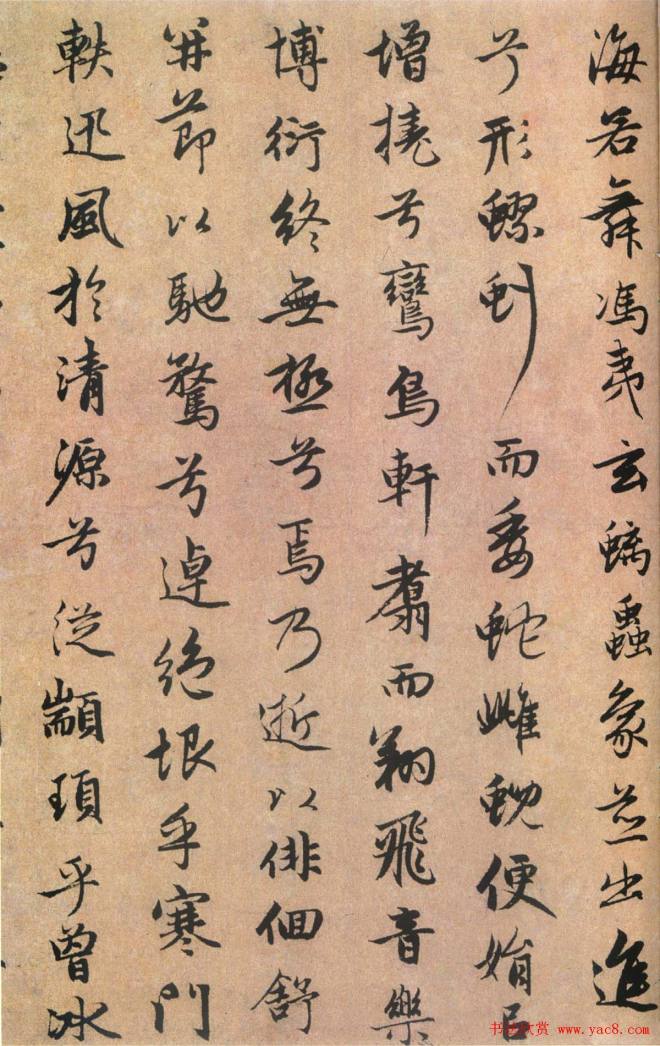 海若舞馮夷玄螭蟲象並出進
兮形蟉虯而委蛇雌蜺便娟以
增撓兮鸞鳥軒翥而翔飛音樂
博衍終無極兮焉乃逝以俳佪舒
并節以馳騖兮逴絕垠乎寒門
軼迅風於清源兮從顓頊乎曾冰
书法欣赏 www.yac8.com